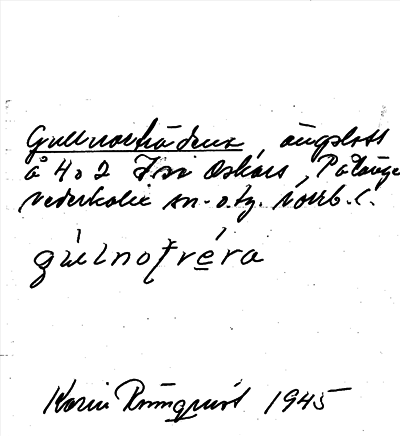 Gullnorträdena, ängslott
å 4 o 2 Jon Oskars, På Länge
Nederkalix sn. o. tg. Norrb. l.
gúl̀no̧tréra
Karin Rönnquist 1945